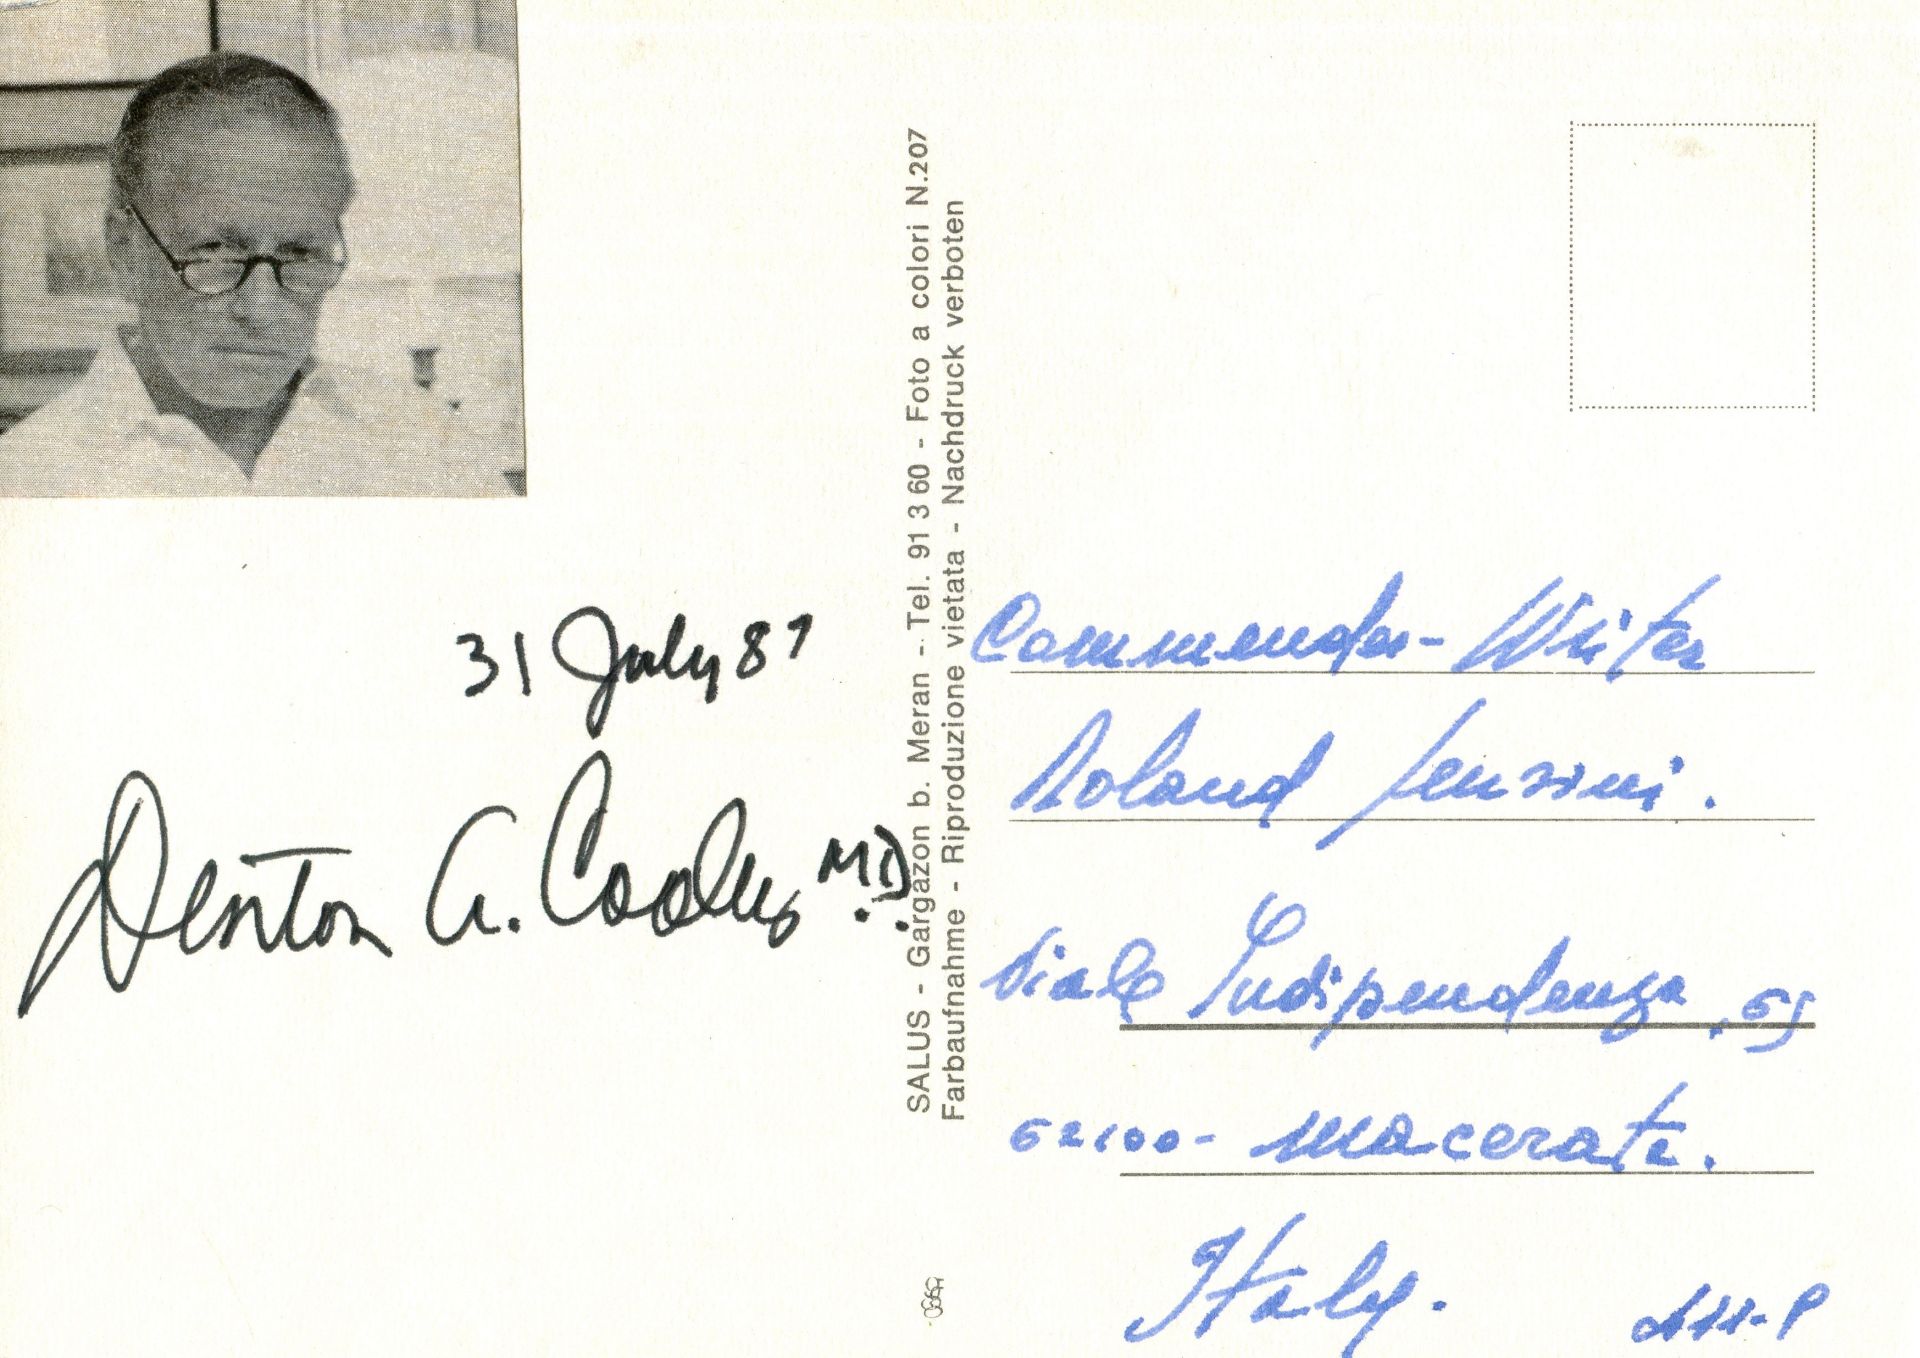 31 July 87
Denton A. Cooley M.D.
SALUS - Gargazon b. Meran - Tel. 91 3 60 - Foto a colori N.207
Farbaufnahme - Riproduzione vietata - Nachdruck verboten
Commender - Writer
Roland
Viale Indipendenza, 65
62100 - Macerata.
Italy.